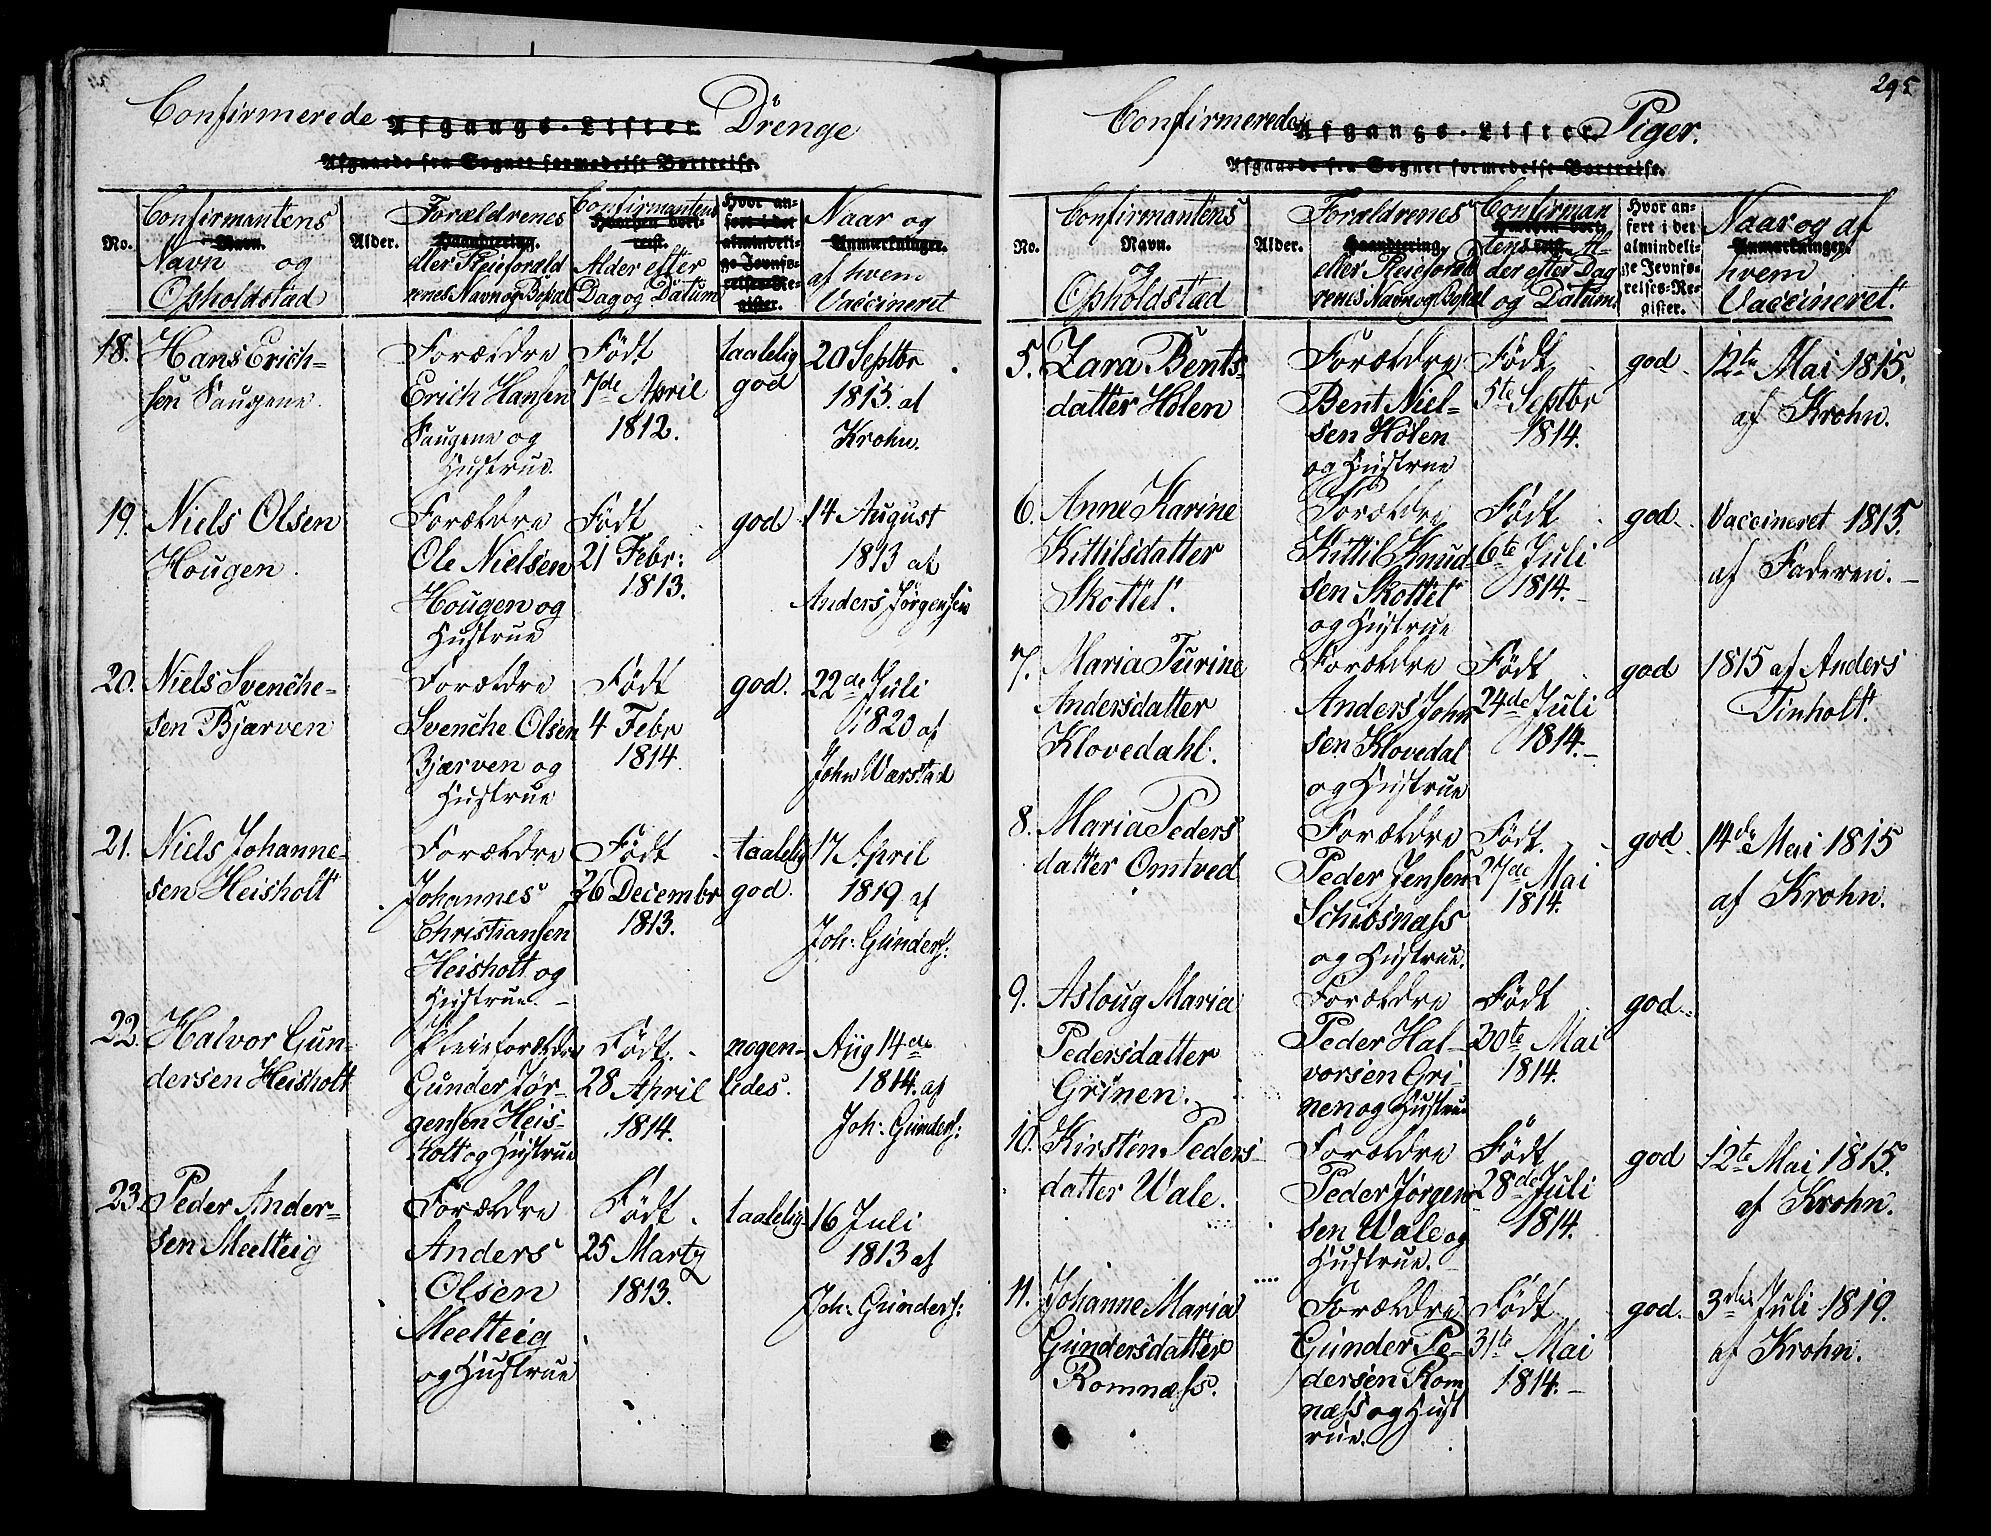 Confirmerede Afgangs-Lister Drenge
Afgaaede fra Sognet formedelst Bortreise.
No.
Confirmantens
Navn.
Navn og
Opholdstad
Alder.
Forældrenes
Haandtering.
eller Pleieforæld
renes Navn og Bopæl
Confirmantens
Hvorhen bort-
reist.
Alder efter
Dag og Datum
Hvor an-
ført i det
almindeli-
ge Jevnfø-
relses-Re-
gister.
Naar og
Anmærkninger.
af hvem
Vaccineret
18. Hans Erich=
sen Saugene
Forældre
Erich Hansen
Saugene og
Hustrue.
Født
7de April
1812.
taalelig
god
20 Septbr
1813. af
Krohn.
19. Niels Olsen
Hougen
Forældre
Ole Nielsen
Hougen og
Hustrue
Født
21 Febr:
1813.
god
14 August
1813 af
Anders Jørgensen
20. Niels Svenche=
sen Bjærven
Forældre
Svenche Olsen
Bjærven og
Hustrue
Født
4 Febr
1814
god.
22de Juli
1820 af
John Warstad
21. Niels Johanne=
sen Heisholt
Forældre
Johannes
Christiansen
Heisholt og
Hustrue.
Født
26 Decembr
1813.
taalelig
god.
17 April
1819 af
Joh: Gunders:
22. Halvor Gun=
dersen Heisholt
Pleieforældre
Gunder Jør-
gensen Heis-
holt og Hustrue
Født.
28 April
1814.
nogen=
ledes.
Aug 14de
1814. af
Joh: Gunders:
23. Peder Ander=
sen Meelteig
Forældre
Anders
Olsen
Meelteig
og Hustrue
Født
25 Marty
1813.
taalelig
16 Juli
1813 af
Joh: Gunders:
295
Confirmerede Afgangs-Lister Piger.
Afgaaede fra Sognet formedelst Bortreise.
No.
Confirmantens
Navn.
og
Opholdstad
Alder.
Forældrenes
Haandtering
eller Pleieforæld
renes Navn og Bopæl
Confirman
Hvorhen bort-
tens reist. Al
der efter Dag
og Datum.
Hvor an-
ført i det
almindeli-
ge Jevnfø-
relses-Re-
gister.
Naar og af
Anmærkninger.
hvem
Vaccineret.
5. Zara Bents-
datter Holen
Forældre
Bent Niel-
sen Holen
og Hustrue
Født
5te Septbr
1814.
god
12te Mai 1815.
af Krohn.
6. Anne Karine
Kittilsdatter
Skottel.
Forældre
Kittil Knud
sen Skottel
og Hustrue
Født
6te Juli
1814.
god
Vaccineret 1815.
af Faderen.
7. Maria Turine
Andersdatter
Klovedahl.
Forældre
Anders John
sen Klovedal
og Hustrue
Født
24de Juli
1814.
god
1815 af Anders
Tinholt.
8. Maria Peders
datter Omtved
Forældre
Peder Jensen
og Hustrue.
Født.
27de Mai
1814.
god
14de Mai 1815
af Krohn.
9. Asloug Maria
Pedersdatter
Grinen.
Forældre
Peder Hal-
vorsen Gri-
nen og Hustrue
Født
30te Mai
1814.
god
10. Kirsten Peders-
datter Wale.
Forældre
Peder Jørgen
sen Wale og
Hustrue.
Født
28de Juli
1814.
god
12te Mai 1815.
af Krohn.
11. Johanne Maria
Gundersdatter
Romnæss.
Forældre
Gunder Pe-
dersen Rom
næss og Hust
rue.
Født
31te Mai
1814.
god.
3die Juli 1819.
af Krohn.